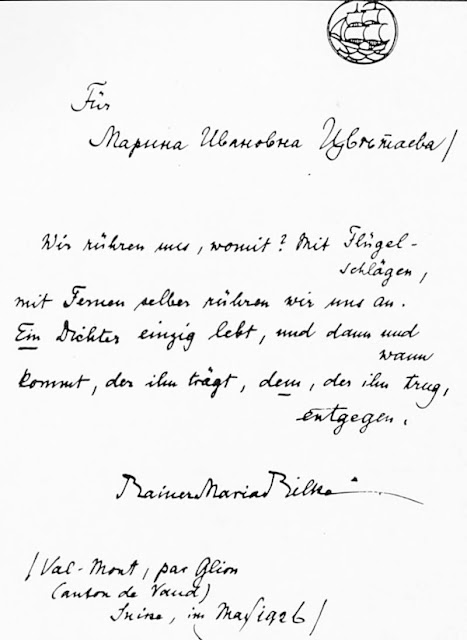 Für
Марина Ивановна Цвѣтаева /
Wir rühren uns, womit? Mit Flügel-
schlägen,
mit Fernen selber rühren wir uns an.
Ein Dichter einzig lebt, und dann und
wann
kommt, der ihn trägt, dem, der ihn trug,
entgegen.
Rainer Maria Rilke
/ Val-Mont, par Glion
(Canton de Vaud)
Suisse, im May 1926 /